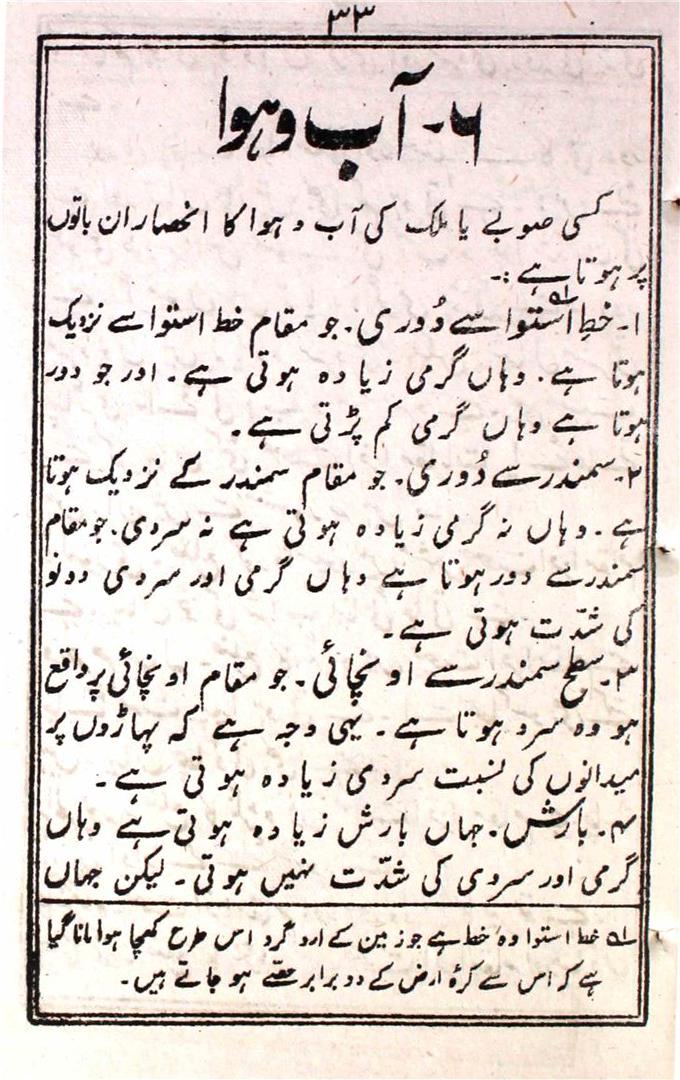 ۳۳
۶۔ آب و ہوا
کسی صوبے یا ملک کی آب و ہوا کا انحصار ان باتوں
پر ہوتا ہے :۔
۱۔ خطِ استوا۱ سے دُوری۔ جو مقام خط استوا سے نزدیک
ہوتا ہے۔ وہاں گرمی زیادہ ہوتی ہے۔ اور جو دور
ہوتا ہے وہاں گرمی کم پڑتی ہے۔
۲۔ سمندر سے دُوری۔ جو مقام سمندر کے نزدیک ہوتا
ہے۔ وہاں نہ گرمی زیادہ ہوتی ہے نہ سردی۔ جو مقام
سمندر سے دور ہوتا ہے وہاں گرمی اور سردی دونو
کی شدّت ہوتی ہے۔
۳۔ سطح سمندر سے اونچائی۔ جو مقام اونچائی پر واقع
ہو وہ سرد ہوتا ہے۔ یہی وجہ ہے کہ پہاڑوں پر
میدانوں کی نسبت سردی زیادہ ہوتی ہے۔
۴۔ بارش۔ جہاں بارش زیادہ ہوتی ہے وہاں
گرمی اور سردی کی شدّت نہیں ہوتی۔ لیکن جہاں
۱؎ خط استوا وہ خط ہے جو زمین کے ارد گرد اس طرح کھچا ہوا مانا گیا
ہے کہ اس سے کرۂ ارض کے دو برابر حصّے ہو جاتے ہیں۔